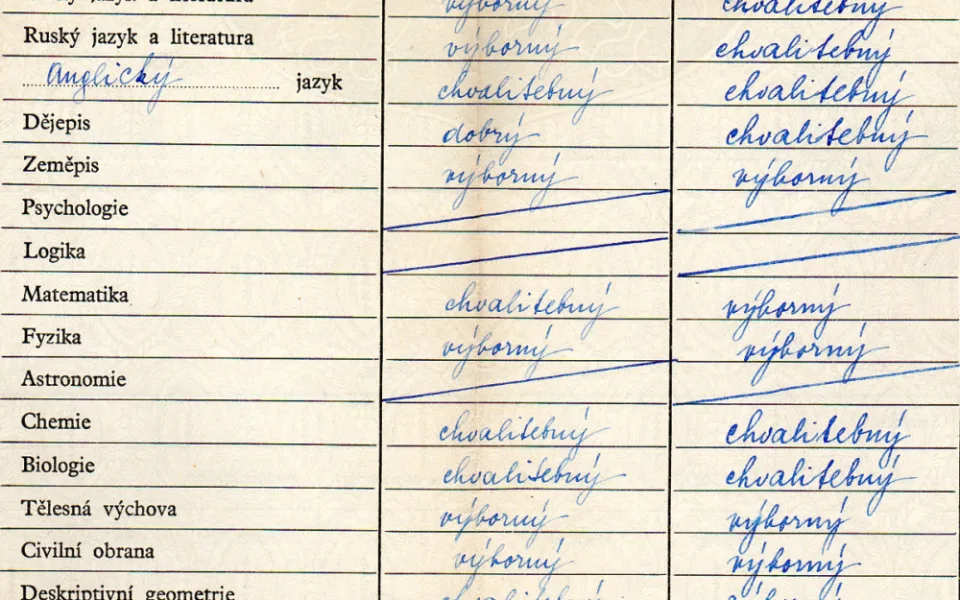 jazyk a literatura výborný chvalitebný
Ruský jazyk a literatura výborný chvalitebný
Anglický jazyk chvalitebný chvalitebný
Dějepis dobrý chvalitebný
Zeměpis výborný výborný
Psychologie
Logika
Matematika chvalitebný výborný
Fyzika výborný výborný
Astronomie
Chemie chvalitebný chvalitebný
Biologie chvalitebný chvalitebný
Tělesná výchova výborný výborný
Civilní obrana výborný výborný
Deskriptivní geometrie